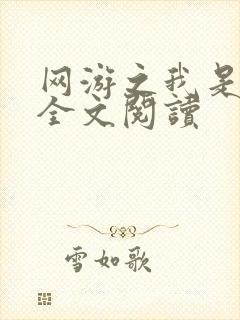 网游之我是
全文閱讀
雪如歌